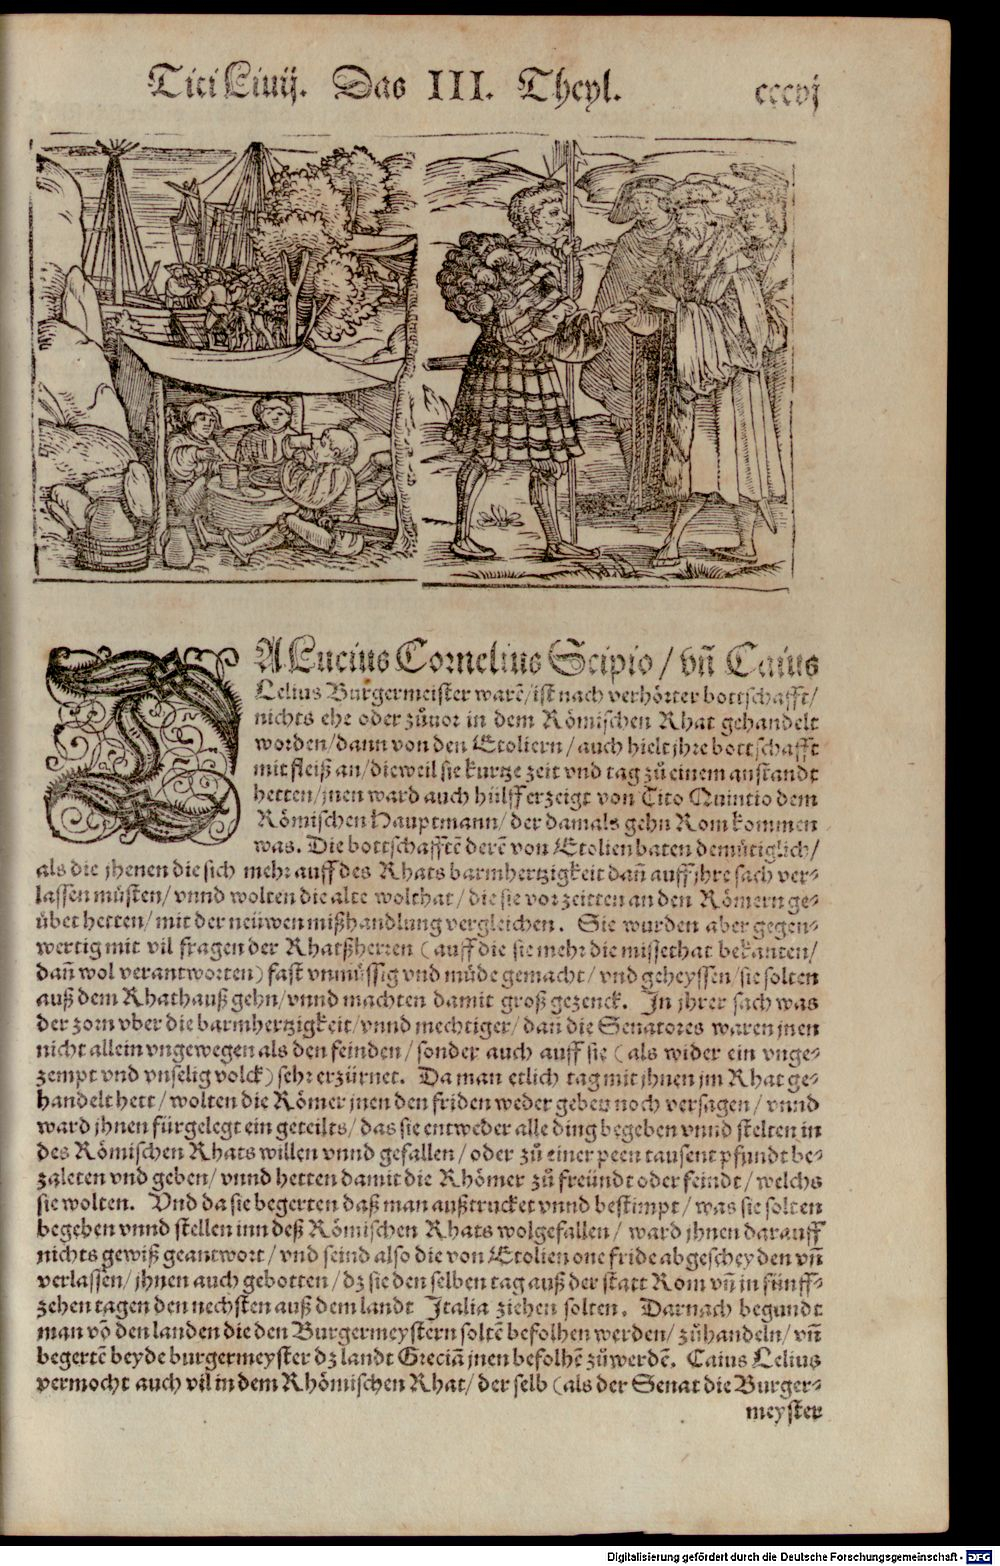 Titi Liuij. Das III. Theyl. cccvj
DA Lucius Cornelius Scipio / vn̄ Caius
Lelius Burgermeister warẽ / ist nach verhörter bottschafft /
nichts ehe oder zůuor in dem Römischen Rhat gehandelt
worden / dann von den Etoliern / auch hielt jhre bottschafft
mit fleiß an / dieweil sie kurtze zeit vnd tag zů einem anstandt
hetten / jnen ward auch hülff erzeigt von Tito Quintio dem
Römischen Hauptmann / der damals gehn Rom kommen
was. Die bottschafftẽ derẽ von Etolien baten demütiglich /
als die jhenen die sich mehr auff des Rhats barmhertzigkeit dan̄ auff jhre sach ver⸗
lassen müsten / vnnd wolten die alte wolthat / die sie vor zeitten an den Römern ge⸗
übet hetten / mit der neüwen mißhandlung vergleichen. Sie wurden aber gegen⸗
wertig mit vil fragen der Rhatßherren (auff die sie mehr die missethat bekanten /
dan̄ wol verantworten) fast vnmüssig vnd müde gemacht / vnd geheyssen / sie solten
auß dem Rhathauß gehn / vnnd machten damit groß gezenck. In jhrer sach was
der zorn vber die barmhertzigkeit / vnnd mechtiger / dan̄ die Senatores waren jnen
nicht allein vngewegen als den feinden / sonder auch auff sie (als wider ein vnge⸗
zempt vnd vnselig volck) sehr erzürnet. Da man etlich tag mit jhnen jm Rhat ge⸗
handelt hett / wolten die Römer jnen den friden weder geben noch versagen / vnnd
ward jhnen fürgelegt ein geteilts / das sie entweder alle ding begeben vnnd stelten in
des Römischen Rhats willen vnnd gefallen / oder zů einer peen tausent pfundt be⸗
zaleten vnd geben / vnnd hetten damit die Rhömer zů freündt oder feindt / welchs
sie wolten. Vnd da sie begerten daß man außtrucket vnnd bestimpt / was sie solten
begeben vnnd stellen inn deß Römischen Rhats wolgefallen / ward jhnen darauff
nichts gewiß geantwort / vnd seind also die von Etolien one fride abgescheyden vn̄
verlassen / jhnen auch gebotten / dz sie den selben tag auß der statt Rom vn̄ in fünff⸗
zehen tagen den nechsten auß dem landt Italia ziehen solten. Darnach begundt
man võ den landen die den Burgermeystern soltẽ befolhen werden / zůhandeln / vn̄
begertẽ beyde burgermeyster dz landt Greciã jnen befolhẽ zůwerdẽ. Caius Lelius
vermocht auch vil in dem Rhömischen Rhat / der selb (als der Senat die Burger⸗
meyster
Digitalisierung gefördert durch die Deutsche Forschungsgemeinschaft - DFG